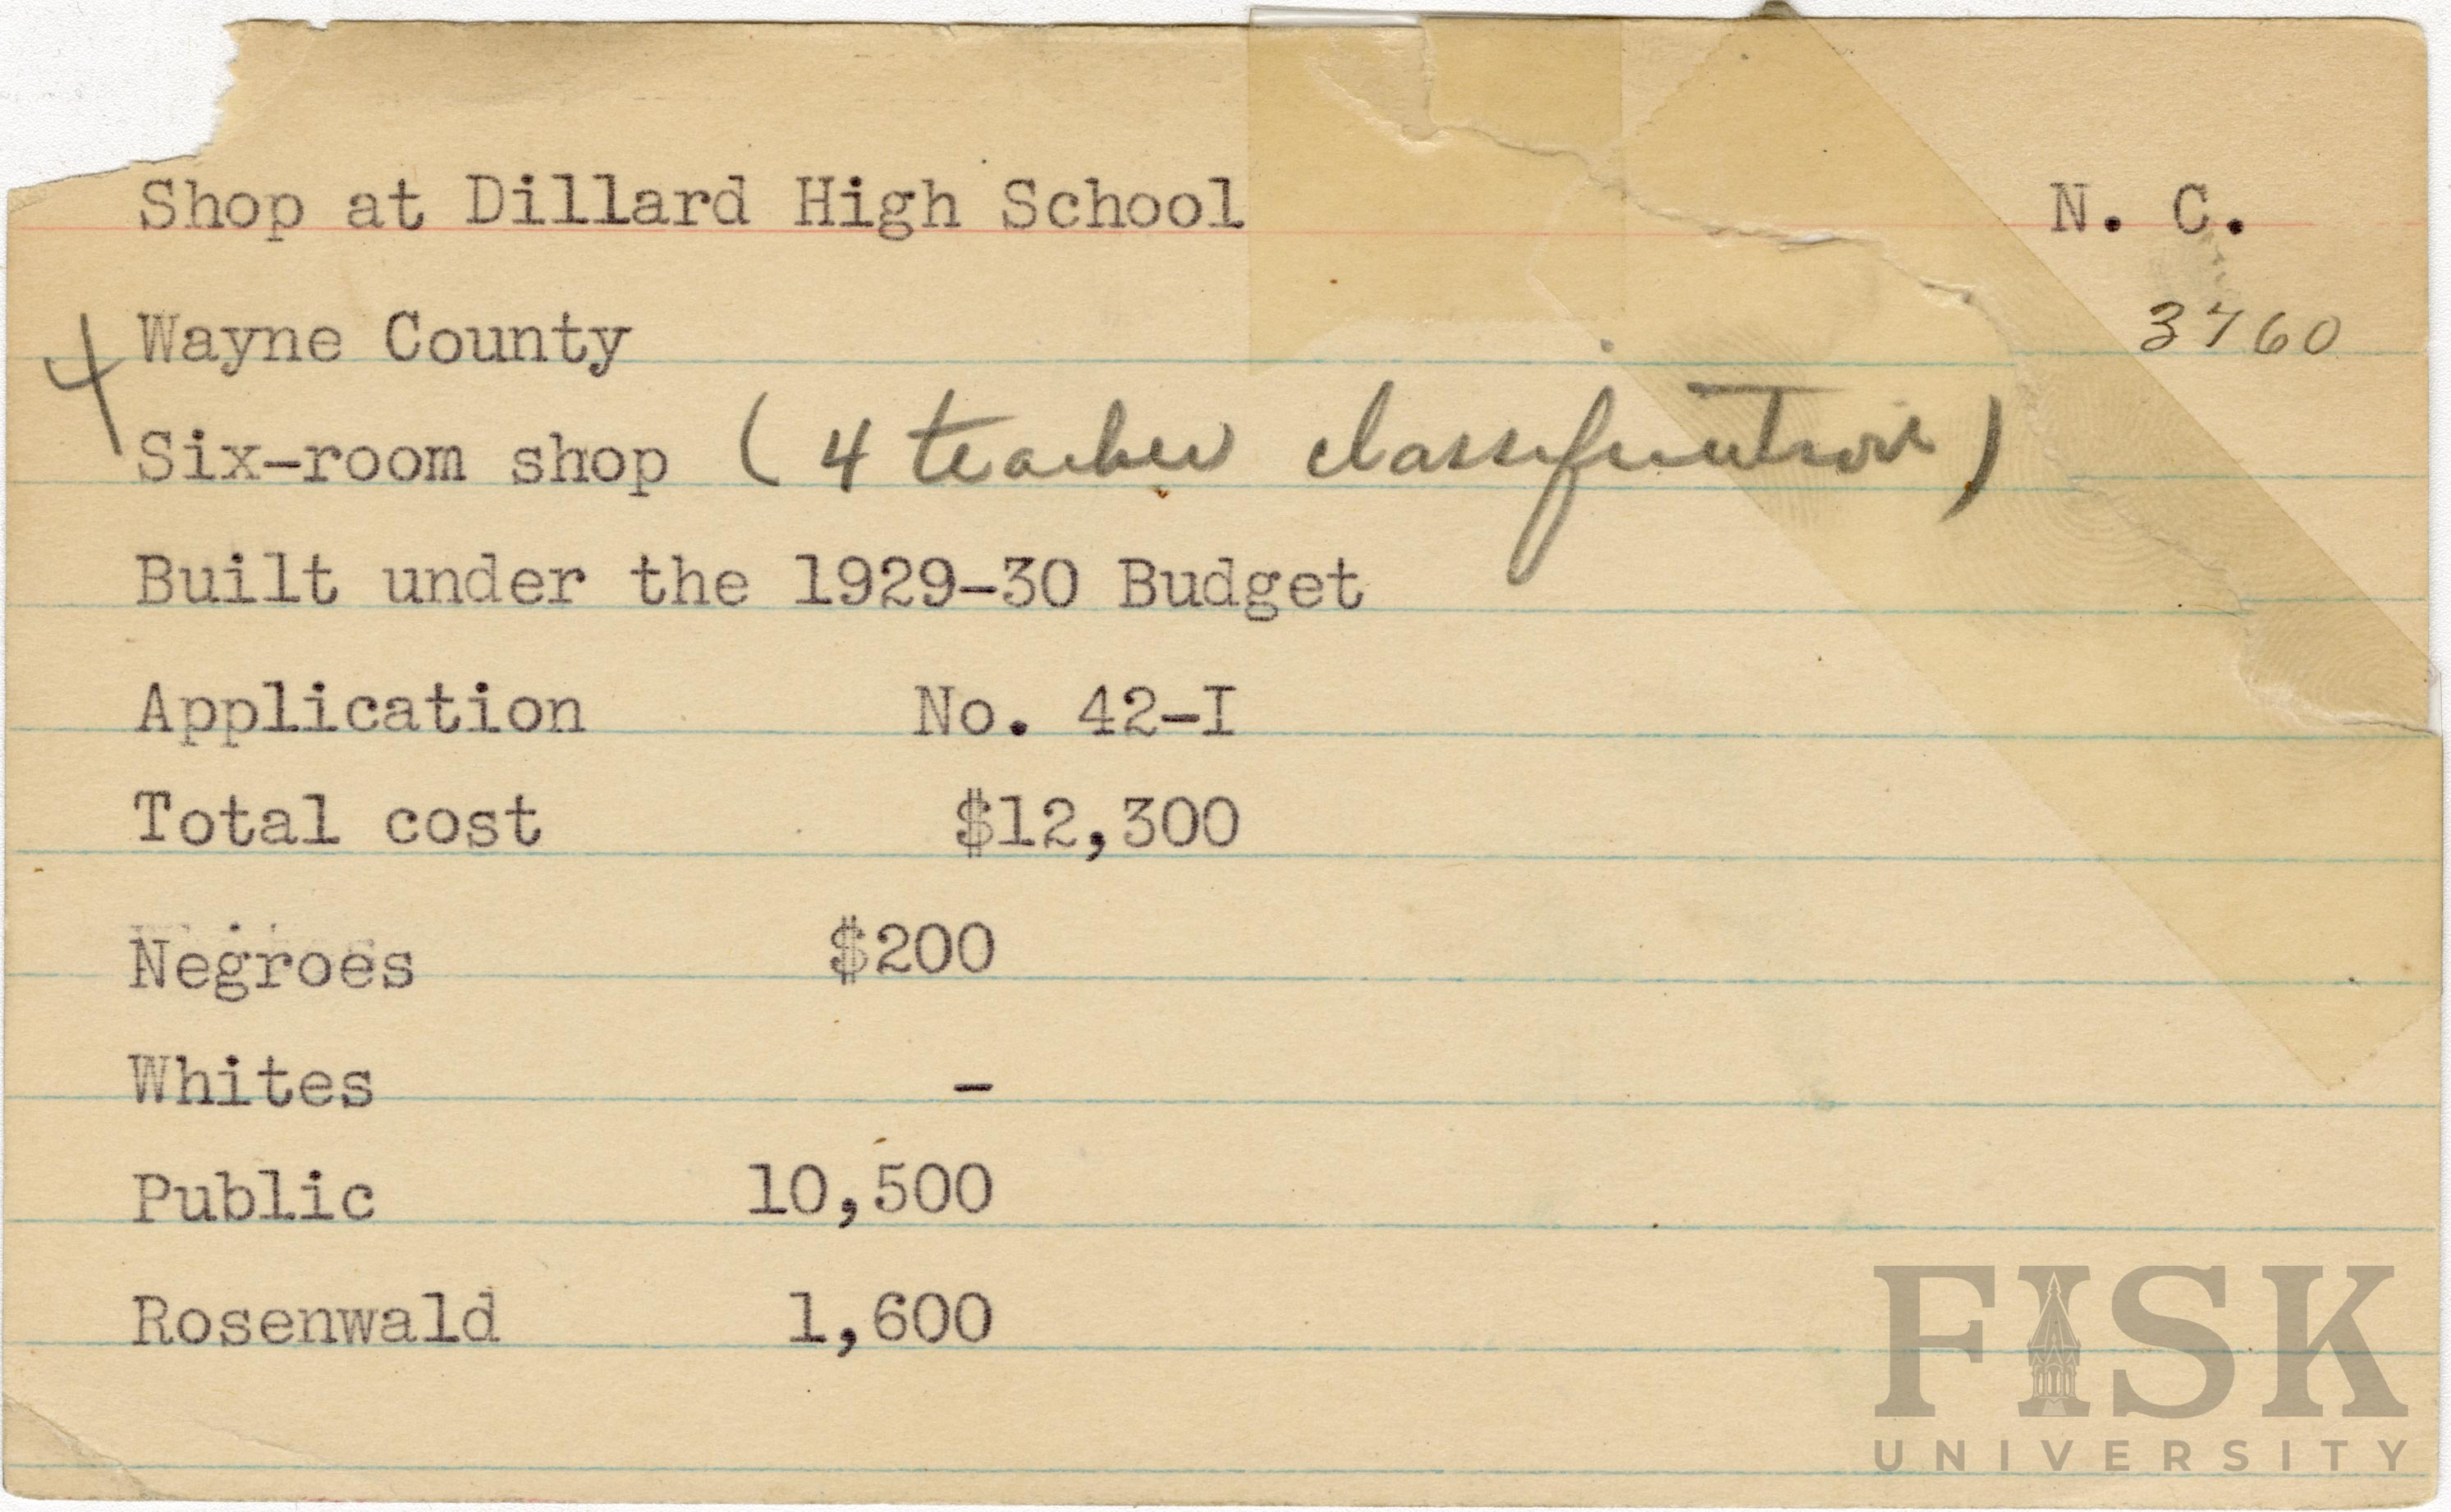 Shop at Dillard High School N. C.
Wayne County 3760
4
Six-room shop (4 teacher classification)
Built under the 1929-30 Budget
Application No. 42-I
Total cost $12,300
Negroes $200
Whites -
Public 10,500
Rosenwald 1,600
FISK
UNIVERSITY